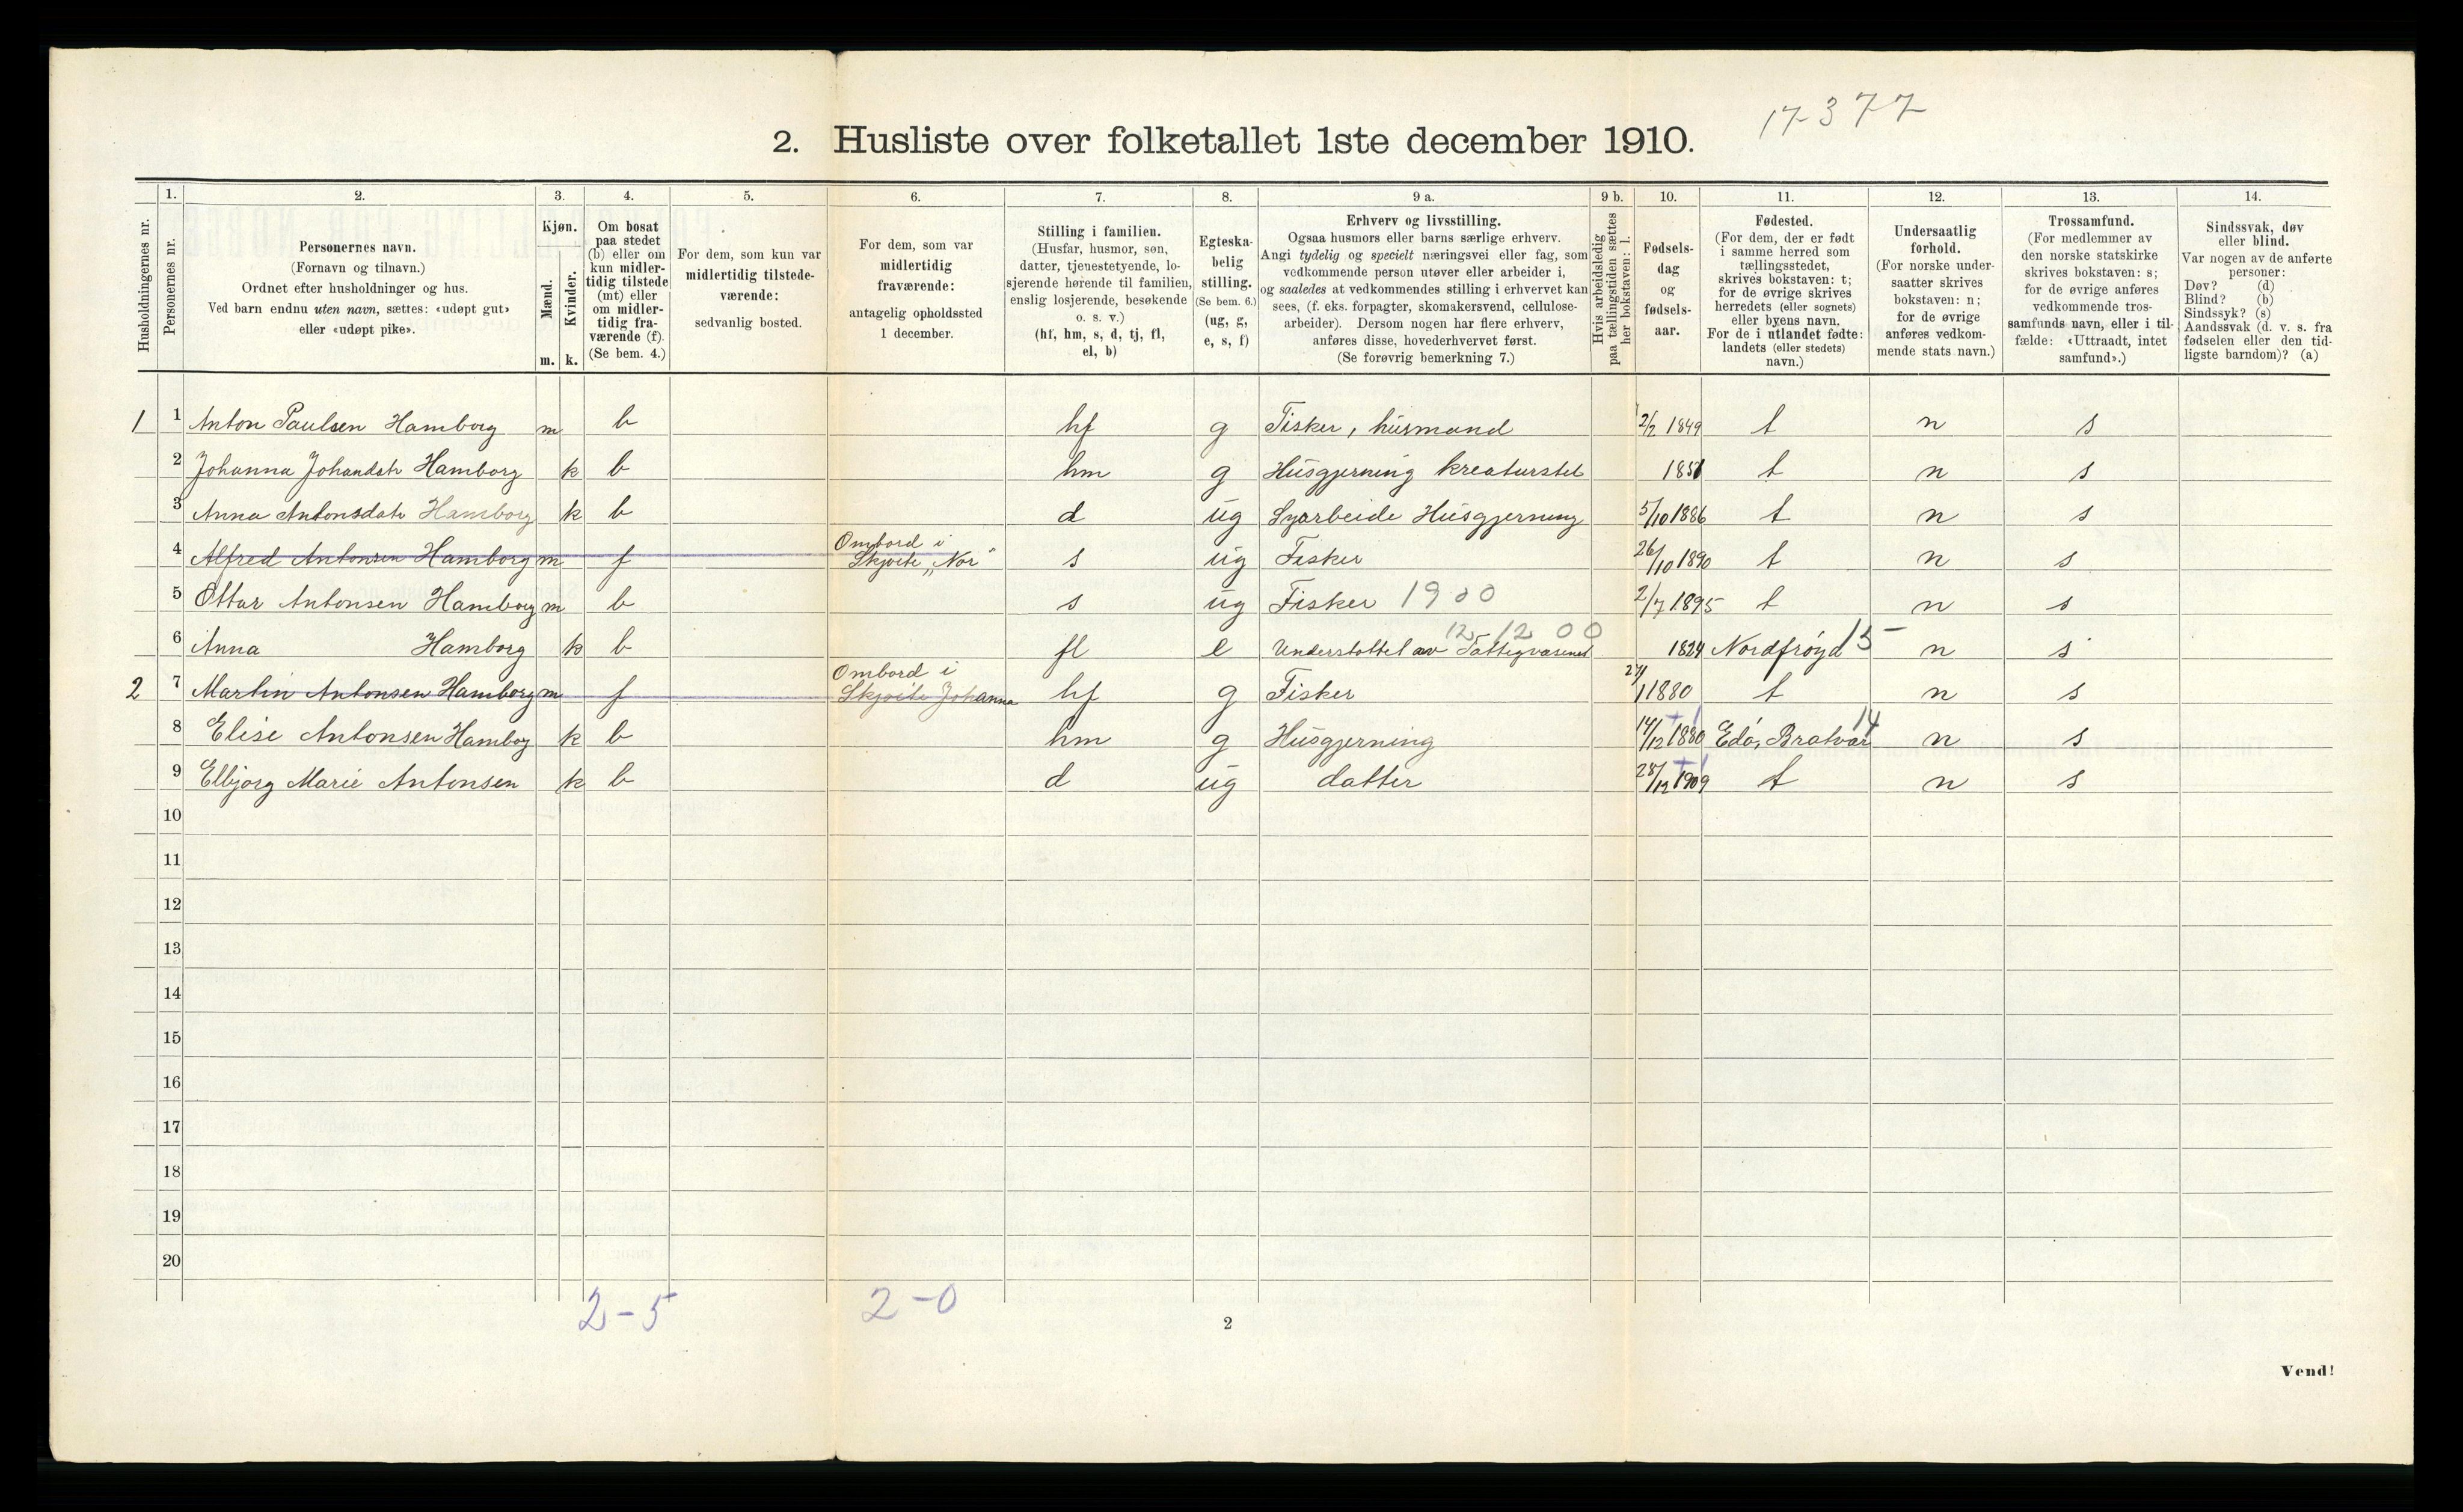 17377
2. Husliste over folketallet 1ste december 1910.
Husholdningernes nr.
1.
Personernes nr.
2.
Personernes navn.
(Fornavn og tilnavn.)
Ordnet efter husholdninger og hus.
Ved barn endnu uten navn, sættes: «udøpt gut»
eller «udøpt pike».
3.
Kjøn.
Mænd.
Kvinder.
m. k.
4.
Om bosat
paa stedet
(b) eller om
kun midler-
tidig tilstede
(mt) eller
om midler-
tidig fra-
værende (f).
(Se bem. 4.)
5.
For dem, som kun var
midlertidig tilstede-
værende:
sedvanlig bosted.
6.
For dem, som var
midlertidig
fraværende:
antagelig opholdssted
1 december.
7.
Stilling i familien.
(Husfar, husmor, søn,
datter, tjenestetyende, lo-
sjerende hørende til familien,
enslig losjerende, besøkende
o. s. v.)
(hf, hm, s, d, tj, fl,
el, b)
8.
Egteska-
belig
stilling.
(Se bem. 6.)
(ug, g,
e, s, f)
9 a.
Erhverv og livsstilling.
Ogsaa husmors eller barns særlige erhverv.
Angi tydelig og specielt næringsvei eller fag, som
vedkommende person utøver eller arbeider i,
og saaledes at vedkommendes stilling i erhvervet kan
sees, (f. eks. forpagter, skomakersvend, cellulose-
arbeider). Dersom nogen har flere erhverv,
anføres disse, hovederhvervet først.
(Se forøvrig bemerkning 7.)
9 b.
Hvis arbeidsledig
paa tællingstiden sættes
her bokstaven: l.
10.
Fødsels-
dag
og
fødsels-
aar.
11.
Fødested.
(For dem, der er født
i samme herred som
tællingsstedet,
skrives bokstaven: t;
for de øvrige skrives
herredets (eller sognets)
eller byens navn.
For de i utlandet fødte:
landets (eller stedets)
navn.)
12.
Undersaatlig
forhold.
(For norske under-
saatter skrives
bokstaven: n;
for de øvrige
anføres vedkom-
mende stats navn.)
13.
Trossamfund.
(For medlemmer av
den norske statskirke
skrives bokstaven: s;
for de øvrige anføres
vedkommende tros-
samfunds navn, eller i til-
fælde: «Uttraadt, intet
samfund».)
14.
Sindssvak, døv
eller blind.
Var nogen av de anførte
personer:
Døv? (d)
Blind? (b)
Sindssyk? (s)
Aandssvak (d. v. s. fra
fødselen eller den tid-
ligste barndom)? (a)
1 1 Anton Paulsen Hamborg m b hf g Fisker, husmand 2/2 1849 t n s
2 Johanna Johansdatr Hamborg k b hm g Husgjerning kreaturstel 1851 t n s
3 Anna Antonsdatr Hamborg k b d ug Syarbeide Husgjerning 5/10 1886 t n s
4 Alfred Antonsen Hamborg m f Ombord i Skjøite „Nor" s ug Fisker 26/10 1890 t n s
5 Ottar Antonsen Hamborg m b s ug Fisker 1900 2/7 1895 t n s
12 - 12 00
6 Anna Hamborg k b fl e Understøttet av Fattigvæsenet 1824 Nordfrøya 15 n s
2 7 Martin Antonsen Hamborg m f Ombord i Skjøite Johanna hf g Fisker 27/1 1880 t n s
8 Elise Antonsen Hamborg k b hm g Husgjerning 14/12 1880 Edø, Bratvær 14 n s
9 Elbjørg Marie Antonsen k b d ug datter 28/12 1909 t n s
10
11
12
13
14
15
16
17
18
19
20
2-5 2-0
2
Vend!